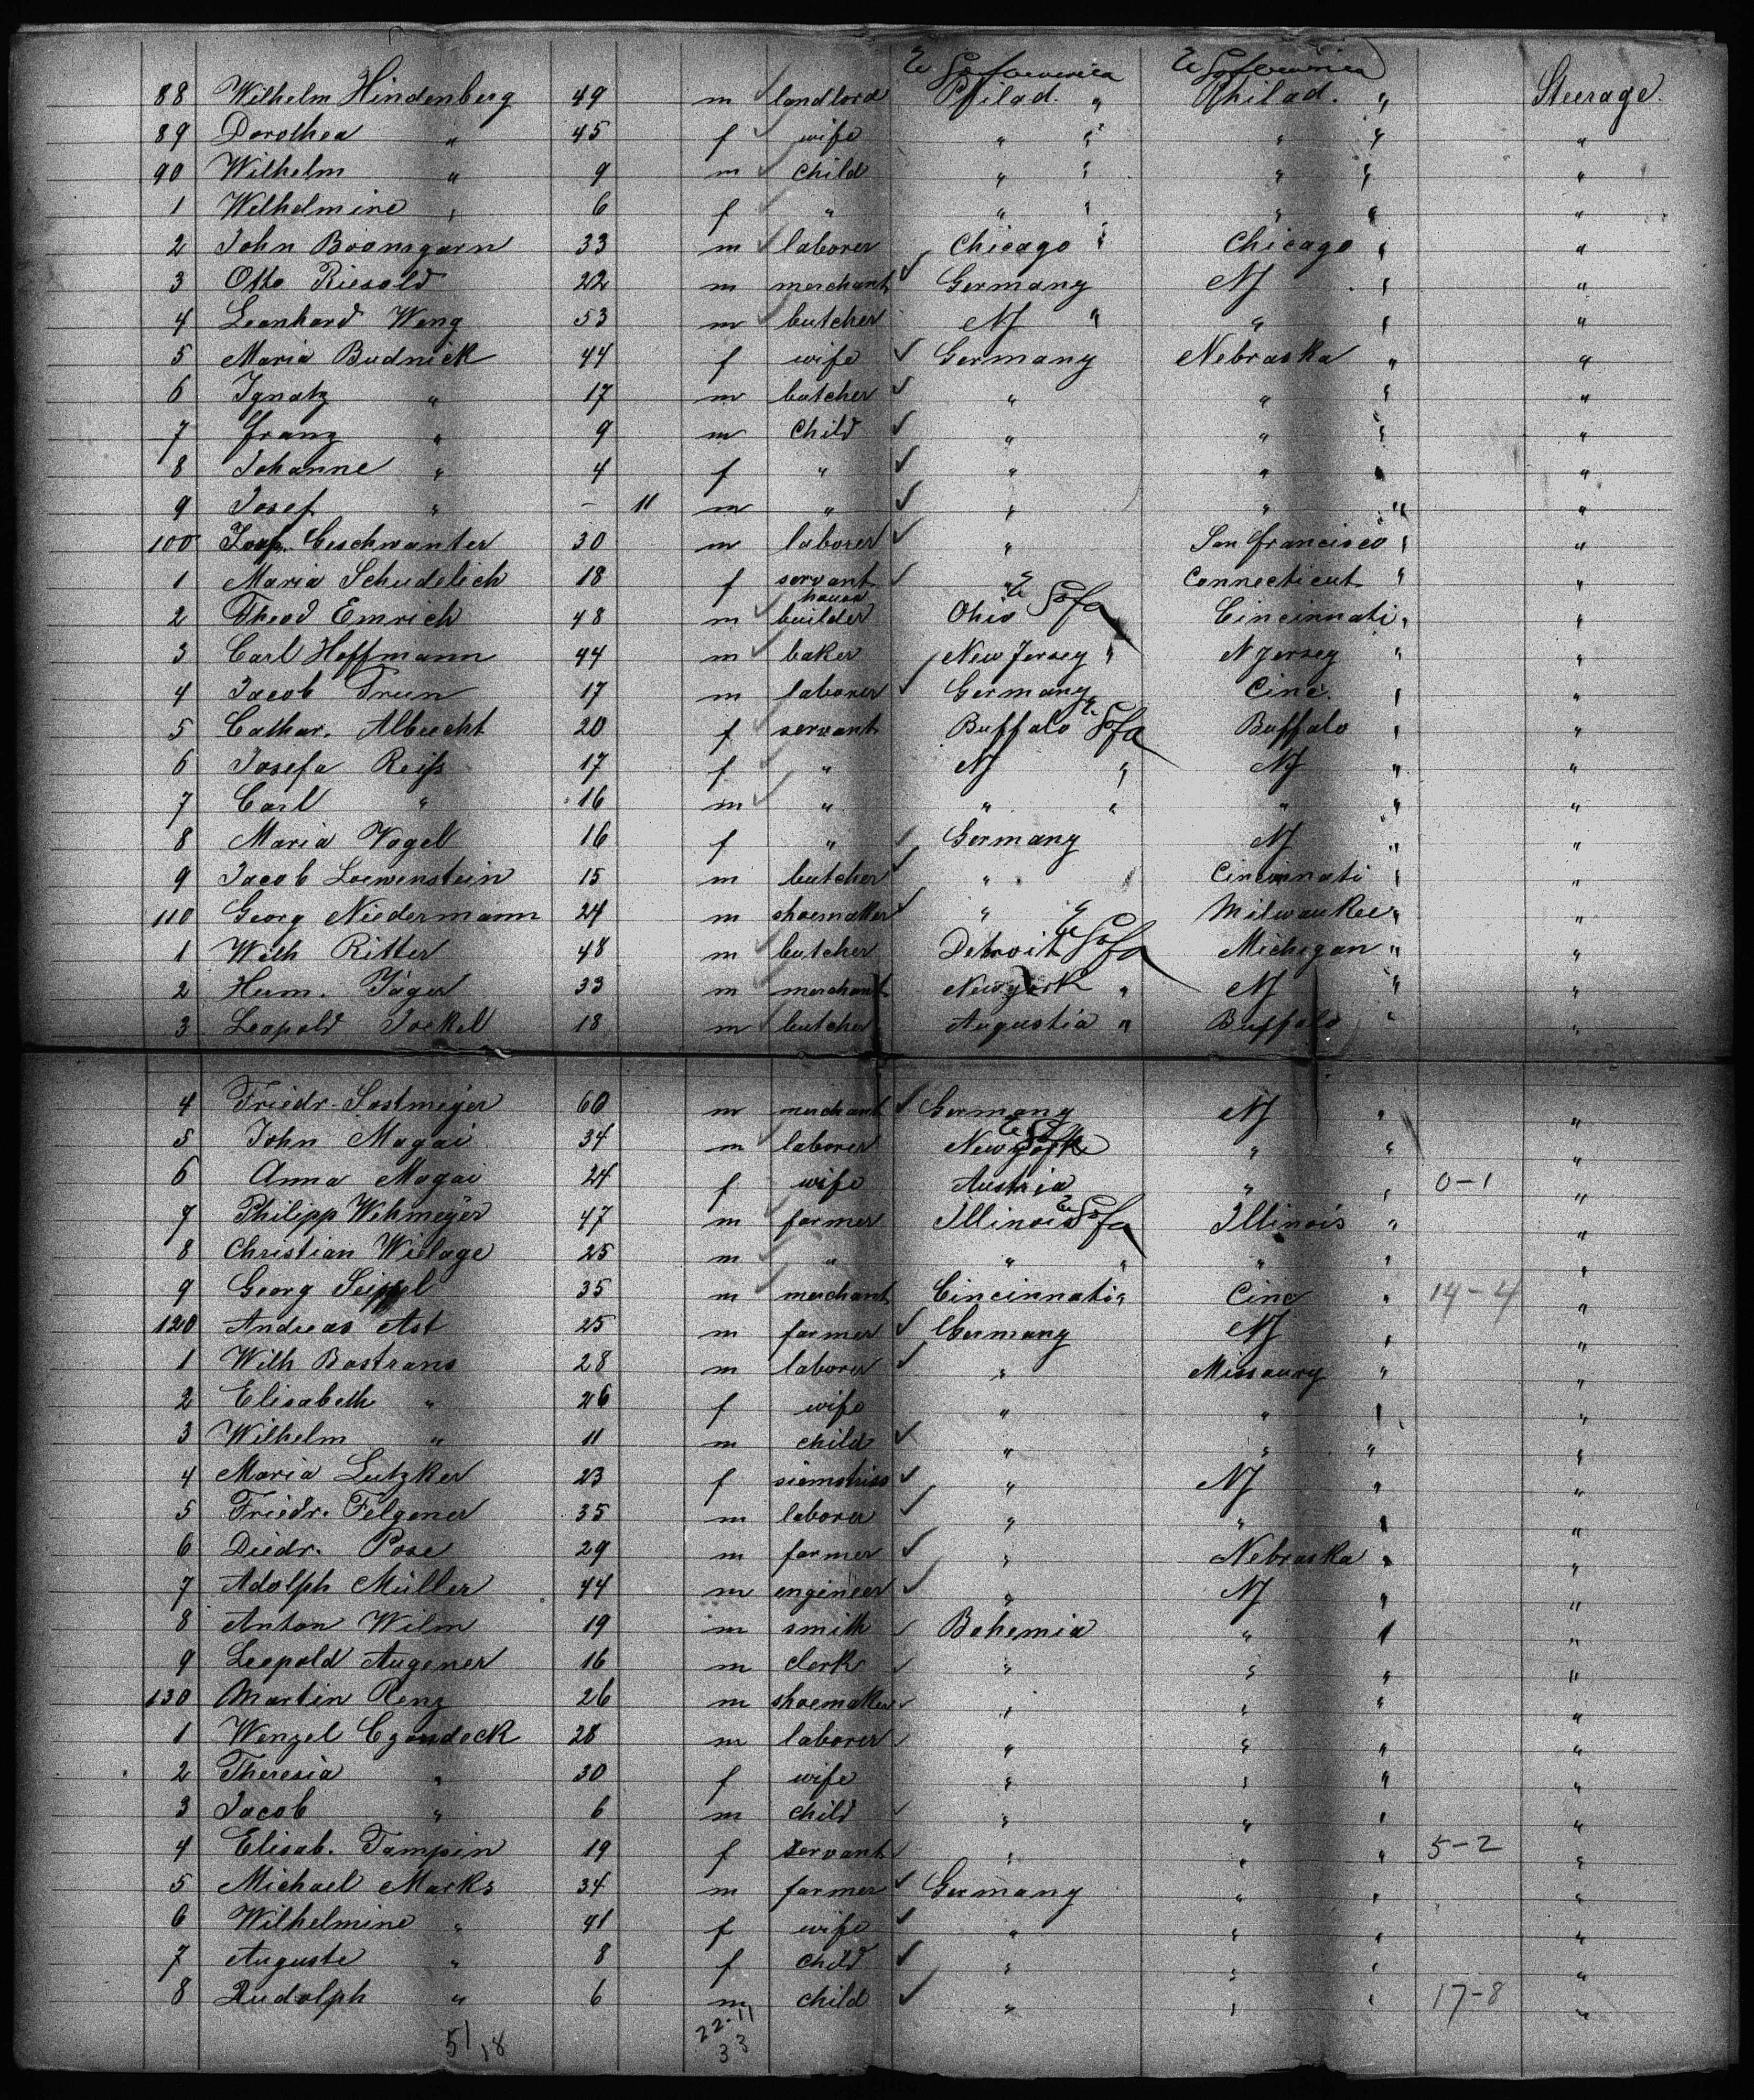 88 Wilhelm Hindenberg 49 m landlord Philad. " Philad. " Steerage.
89 Dorothea " 45 f wife " " " " "
90 Wilhelm " 9 m child " " " " "
1 Wilhelmine " 6 f " " " " " "
2 John Boomgarn 33 m laborer Chicago " Chicago " "
3 Otto Riesold 22 m merchant Germany NY " "
4 Leonhard Weng 53 m butcher NY " " " "
5 Maria Budnick 44 f wife Germany Nebraska " "
6 Ignatz " 17 m butcher " " " "
7 Franz " 9 m child " " " "
8 Johanne " 4 f " " " " "
9 Josef " - 11 m " " " " "
100 Geschwanter 30 m laborer " San Francisco " "
1 Maria Schudelich 18 f servant " Connecticut " "
2 Theod Emrich 48 m house builder Ohio Cincinnati " "
3 Carl Hoffmann 44 m baker New Jersey " N Jersey " "
4 Jacob Trun 17 m laborer Germany Cinc. " "
5 Cathar. Albrecht 20 f servant Buffalo Buffalo " "
6 Josefa Reiss 17 f " NY " NY " "
7 Carl " 16 m " " " " " "
8 Maria Vogel 16 f " Germany NY " "
9 Jacob Loewenstein 15 m butcher " Cincinnati " "
110 Georg Niedermann 24 m shoemaker " Milwaukee " "
1 Wilh Ritter 48 m butcher Detroit Michigan " "
2 Herm. Jäger 33 m merchant New york " NY " "
3 Leopold Jockel 18 m butcher Augustia " Buffalo " "
4 Friedr. Sostmeyer 60 m merchant Germany NY " "
5 John Magai 34 m laborer New york " " "
6 Anna Magai 24 f wife Austria " " 0-1 "
7 Philipp Wehmeyer 47 m farmer Illinois Illinois " "
8 Christian Wielage 25 m " " " " " "
9 Georg Seippel 35 m merchant Cincinnati " Cinc " 14-4 "
120 Andreas Ast 25 m farmer Germany NY " "
1 Wilh Bostrans 28 m laborer " Missoury " "
2 Elisabeth " 26 f wife " " " "
3 Wilhelm " 11 m child " " " "
4 Maria Lutzker 23 f siemstriss " NY " "
5 Friedr. Felgener 35 m laborer " " " "
6 Diedr. Pose 29 m farmer " Nebraska " "
7 Adolph Müller 44 m engineer " NY " "
8 Anton Wilm 19 m smith Bohemia " " "
9 Leopold Augener 16 m clerk " " " "
130 Martin Renz 26 m shoemaker " " " "
1 Wenzel 28 m laborer " " " "
2 Theresia " 30 f wife " " " "
3 Jacob " 6 m child " " " "
4 Elisab. Tampin 19 f servant " " " 5-2 "
5 Michael Marks 34 m farmer Germany " " "
6 Wilhelmine " 41 f wife " " " "
7 Auguste " 8 f child " " " "
8 Rudolph " 6 m child " " " 17-8 "
51 18 22-11
33